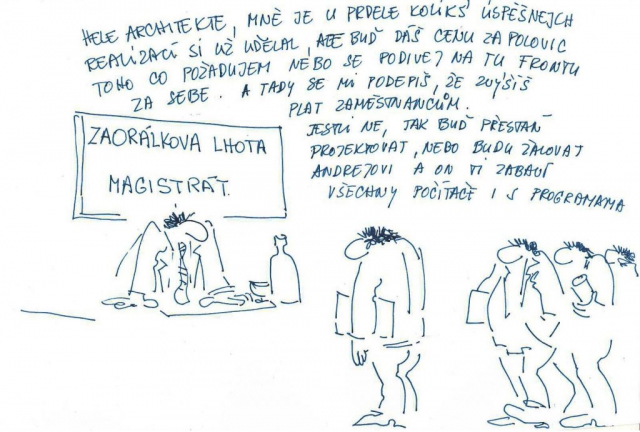 HELE ARCHITEKTE, MNĚ JE U PRDELE KOLIKS ÚSPĚŠNEJCH
REALIZACÍ SI UŽ UDĚLAL, ALE BUĎ DÁŠ CENU ZA POLOVIC
TOHO CO POŽADUJEM NEBO SE PODIVEJ NA TU FRONTU
ZA SEBE. A TADY SE MI PODEPIŠ, ŽE ZVÝŠÍŠ
PLAT ZAMĚSTNANCŮM.
JESTLI NE, TAK BUĎ PŘESTAŇ
PROJEKTOVAT, NEBO BUDU ŽALOVAT
ANDREJOVI A ON TI ZABAVÍ
VŠECHNY POČÍTAČE I S PROGRAMAMA
ZAORÁLKOVA LHOTA
MAGISTRÁT